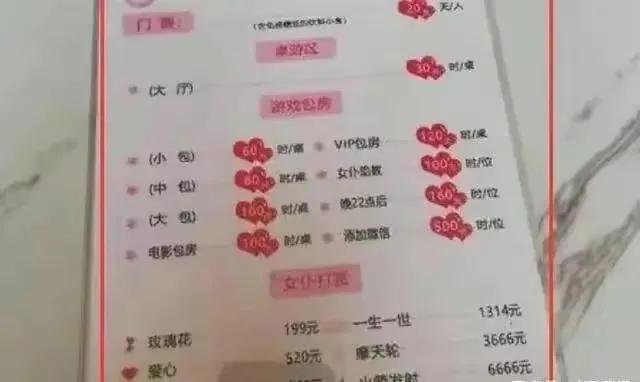 门 票: 20 天/人
桌游区
(大 厅) 30 时/桌
游戏包房
(小 包) 60 时/桌 VIP包房 120 时/桌
(中 包) 80 时/桌 女仆陪数 100 时/位
(大 包) 160 时/桌 晚22点后 160 时/位
电影包房 100 时/桌 添加微信 500 时/位
女仆打赏
玫瑰花 199元 一生一世 1314元
爱心 520元 摩天轮 3666元
火箭发射 6666元